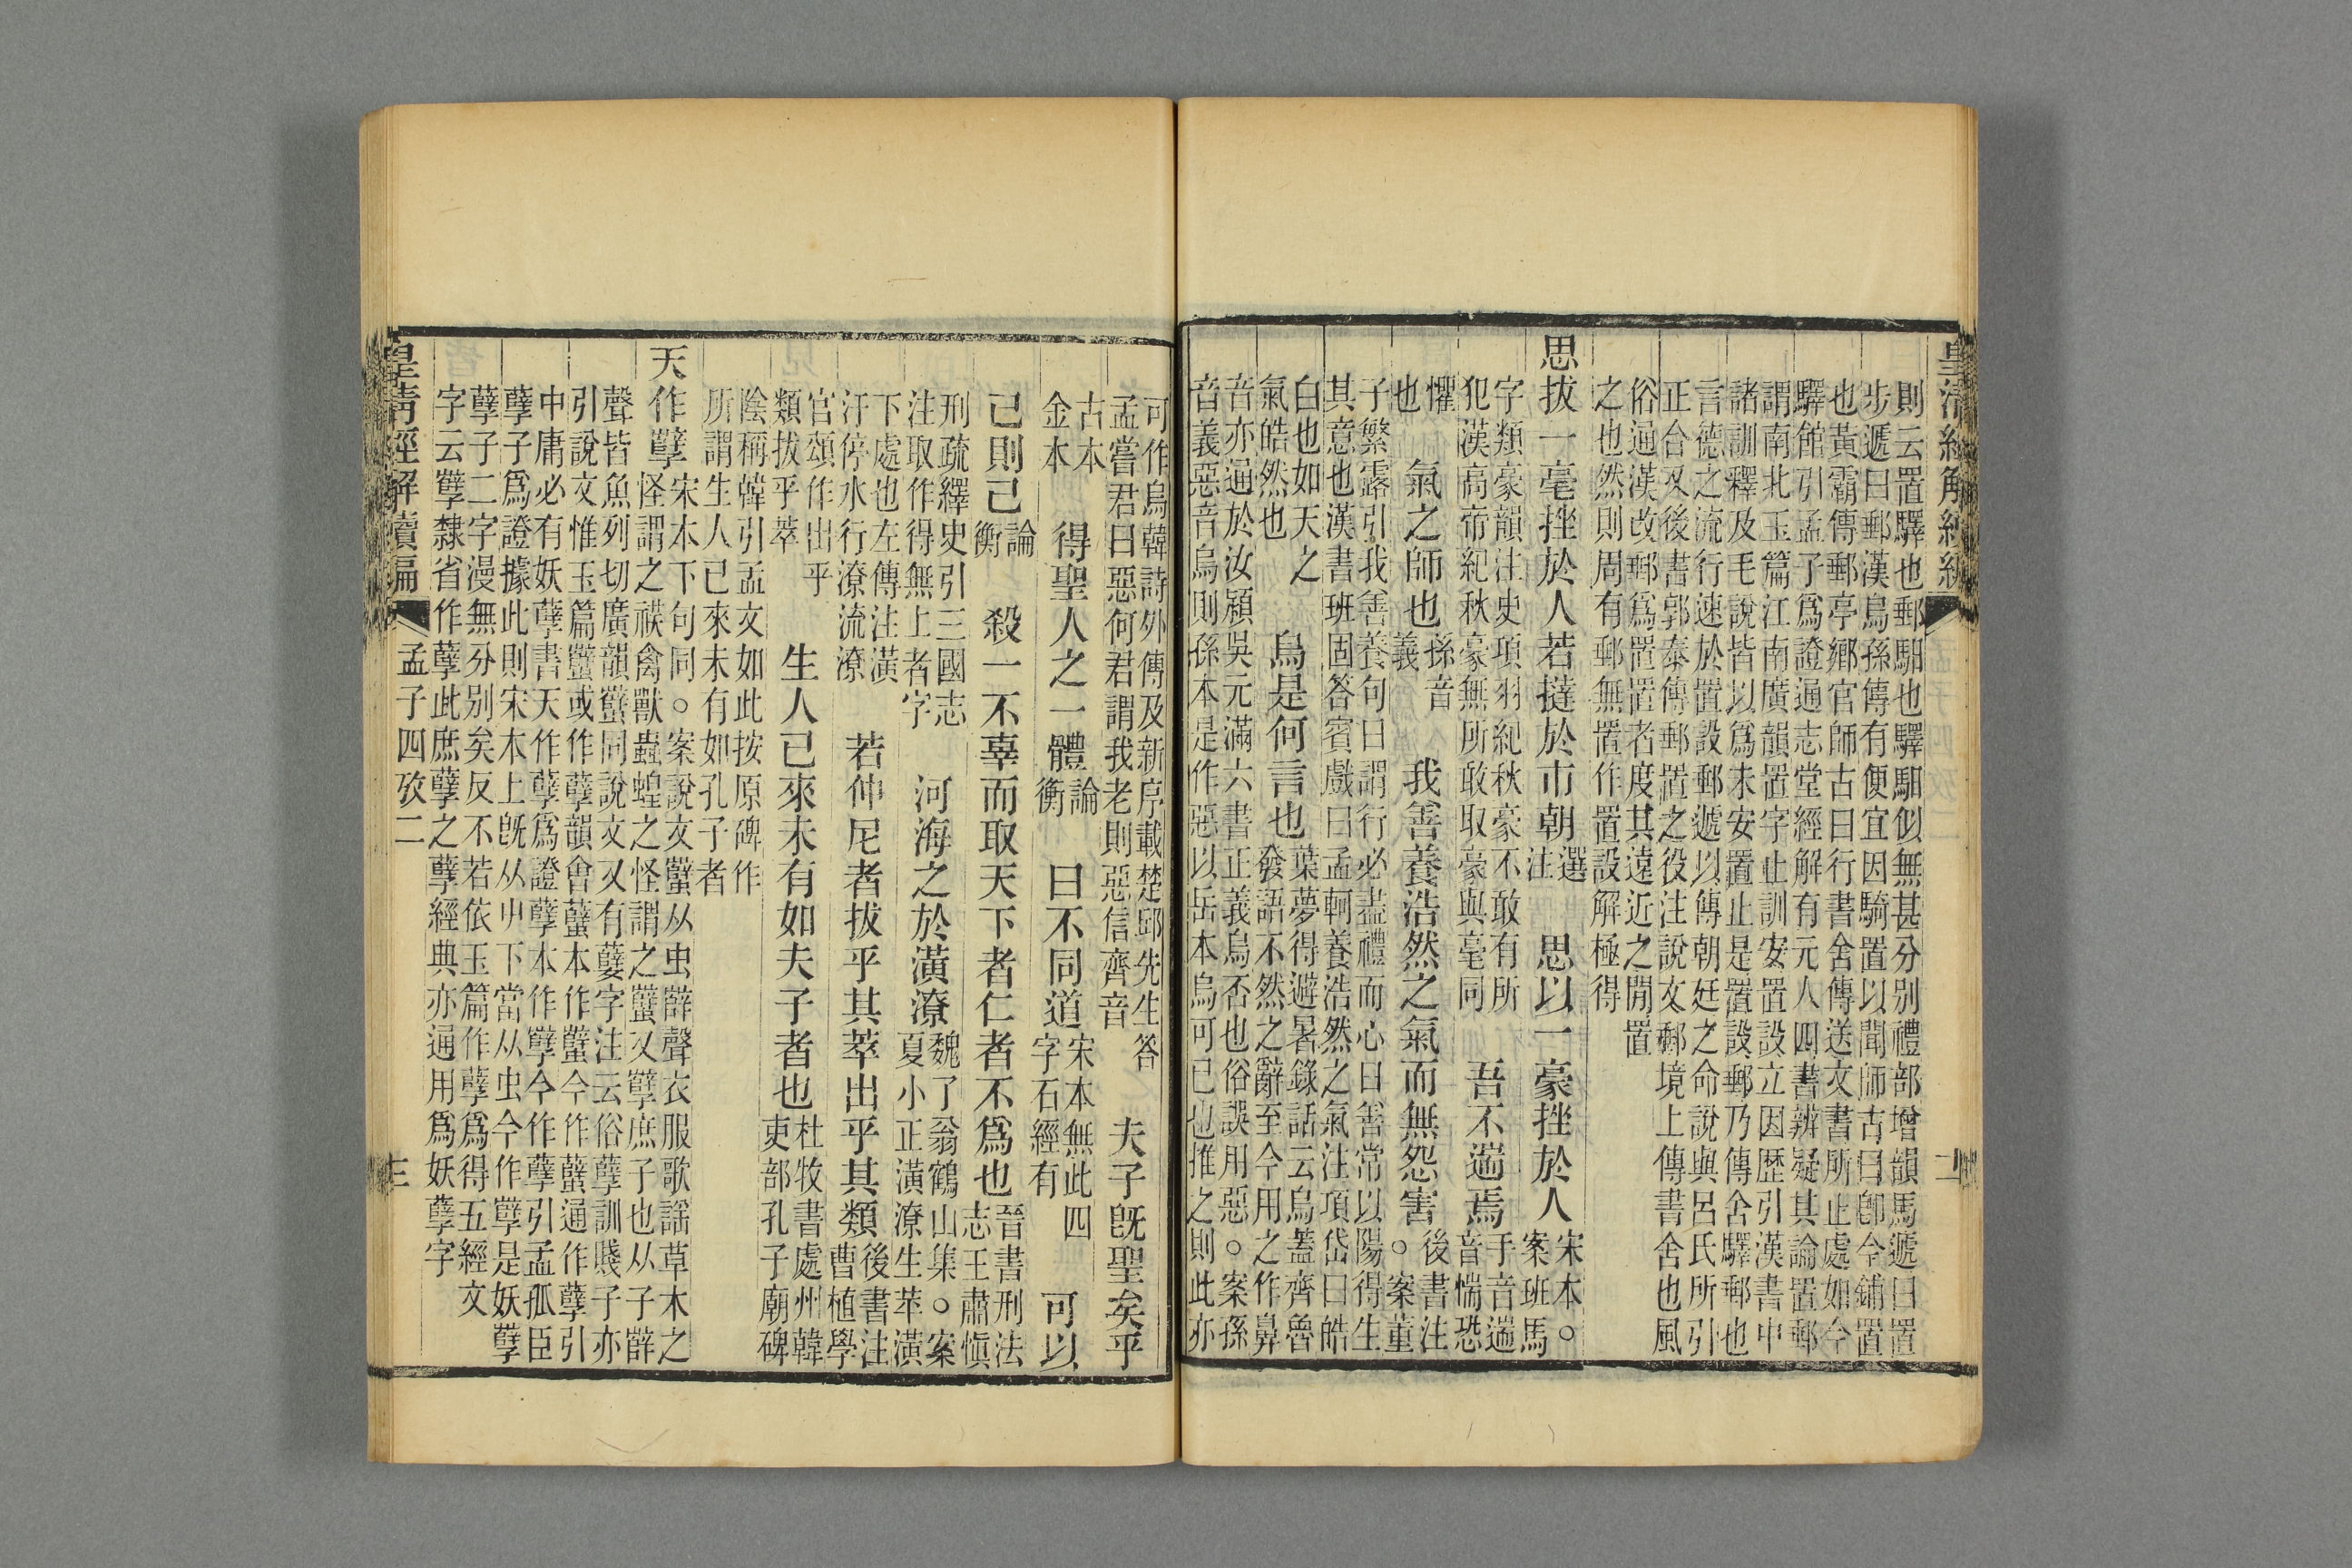 皇清經解續編
二
則云置驛也郵馹也驛馹似無甚分别禮部增韻馬遞曰置
步遞曰郵漢烏孫傳有便宜因騎置以聞師古曰卽今鋪置
也黃霸傳郵亭鄉官師古曰行書舍傳送文書所止處如今
驛館引孟子爲證通志堂經解有元人四書辨疑其論置郵
謂南北玉篇江南廣韻置字止訓安置設立因歷引漢書中
諸訓釋及毛說皆以爲未安置止是置設郵乃傳舍驛郵也
言德之流行速於置設郵遞以傳朝廷之命說與呂氏所引
正合又後書郭泰傳郵置之役注說文郵境上傳書舍也風
俗通漢改郵爲置置者度其遠近之閒置
之也然則周有郵無置作置設解極得
思拔一毫挫於人若撻於市朝
選
注
思以一豪挫於人
宋本。
案班馬
字類豪韻注史項羽紀秋豪不敢有所
犯漢高帝紀秋豪無所敢取豪與毫同
吾不遄焉
手音遄
音惴恐
懼
也
氣之師也
孫音
義
我善養浩然之氣而無怨害
後書注
。案董
子繁露引我善養句曰謂行必盡禮而心曰善常以陽得生
其意也漢書班固答賓戲曰孟軻養浩然之氣注項岱曰皓
白也如天之
氣皓然也
烏是何言也
葉夢得避暑錄話云烏蓋齊魯
發語不然之辭至今用之作鼻
音亦通於汝潁吳元滿六書正義烏否也俗誤用惡。案孫
音義惡音烏則孫本是作惡以岳本烏可已也推之則此亦
可作烏韓詩外傳及新序載楚邱先生答
孟嘗君曰惡何君謂我老則惡信齊音
夫子旣聖矣乎
古本
金本
得聖人之一體
論
衡
曰不同道
宋本無此四
字石經有
可以
己則己
論
衡
殺一不辜而取天下者仁者不爲也
晉書刑法
志王肅愼
刑疏繹史引三國志
注取作得無上者字
河海之於潢潦
魏了翁鶴山集。案
夏小正潢潦生苹潢
下處也左傳注潢
汙停水行潦流潦
若仲尼者拔乎其萃出乎其類
後書注
曹植學
官頌作出乎
類拔乎萃
生人已來未有如夫子者也
杜牧書處州韓
吏部孔子廟碑
陰稱韓引孟文如此按原碑作
所謂生人已來未有如孔子者
天作孽
宋本下句同。案說文蠥从虫辥聲衣服歌謠草木之
怪謂之䄏禽獸蟲蝗之怪謂之蠥又孽庶子也从子辥
聲皆魚列切廣韻蠥同說文又有孽字注云俗孽訓賤子亦
引說文惟玉篇蠥或作孽韻會蠥本作蠥今作蠥通作孽引
中庸必有妖孽書天作孽爲證孽本作孽今作孽引孟孤臣
孽子爲證據此則宋本上旣从屮下當从虫今作孽是妖孽
孽子二字漫無分别矣反不若依玉篇作孽爲得五經文
字云孽隸省作孽此庶孽之孽經典亦通用爲妖孽字
皇清經解續編
孟子四攷二
三